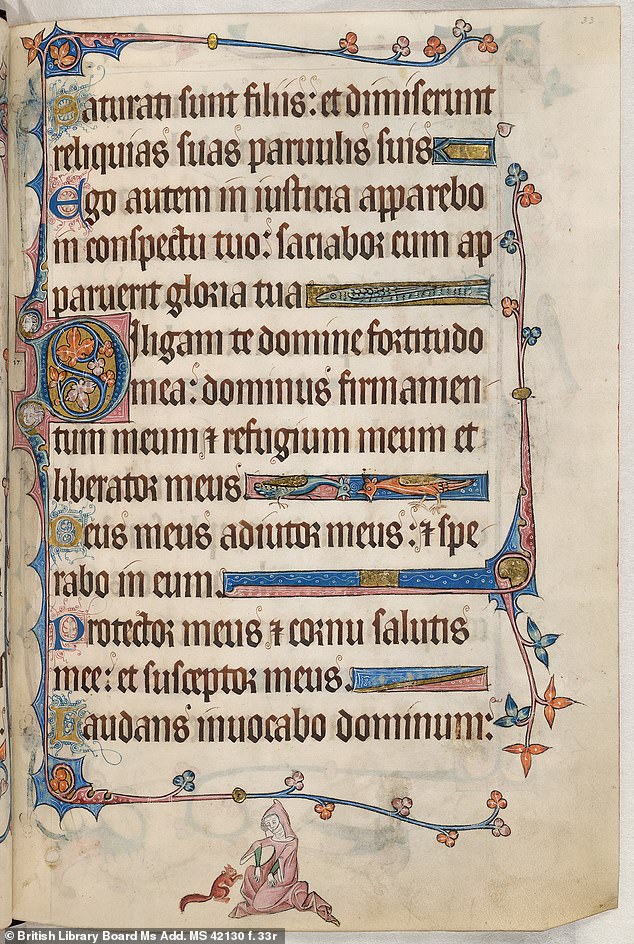 33
Saturati sunt filiis: et dimiserunt
reliquias suas paruulis suis
Ego autem in iusticia apparebo
in conspectu tuo: saciabor cum ap
paruerit gloria tua
17
Diligam te domine fortitudo
mea: dominus firmamen
tum meum ⁊ refugium meum et
liberator meus
Deus meus adiutor meus: ⁊ spe
rabo in eum.
Protector meus ⁊ cornu salutis
mee: et susceptor meus.
Laudans inuocabo dominum:
© British Library Board Ms Add. MS 42130 f. 33r